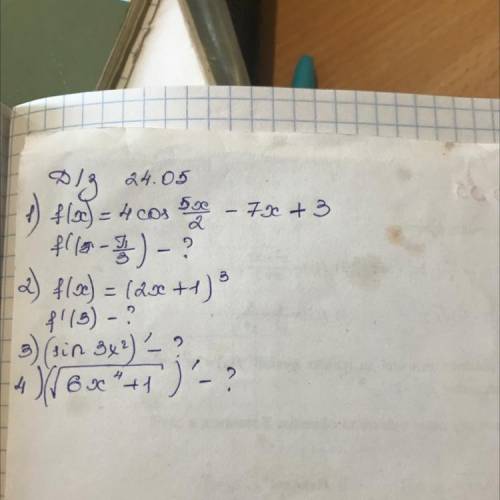 Д/з 24.05
1) f(x) = 4 cos 5x/2 - 7x + 3
f'(- π/3) - ?
2) f(x) = (2x+1)³
f'(3) - ?
3) (sin 3x²)' - ?
4) (√(6x⁴+1))' - ?